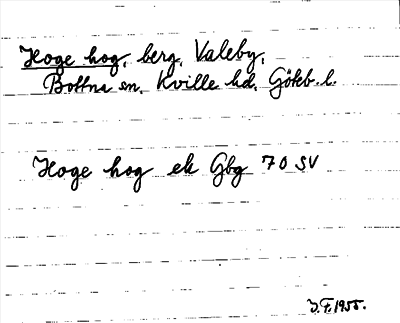 Hoge hog, berg, Valeby,
Bottna sn, Kville hd, Göteb. l.
Hoge hog ek Gbg 70 SV
J.F. 1955.